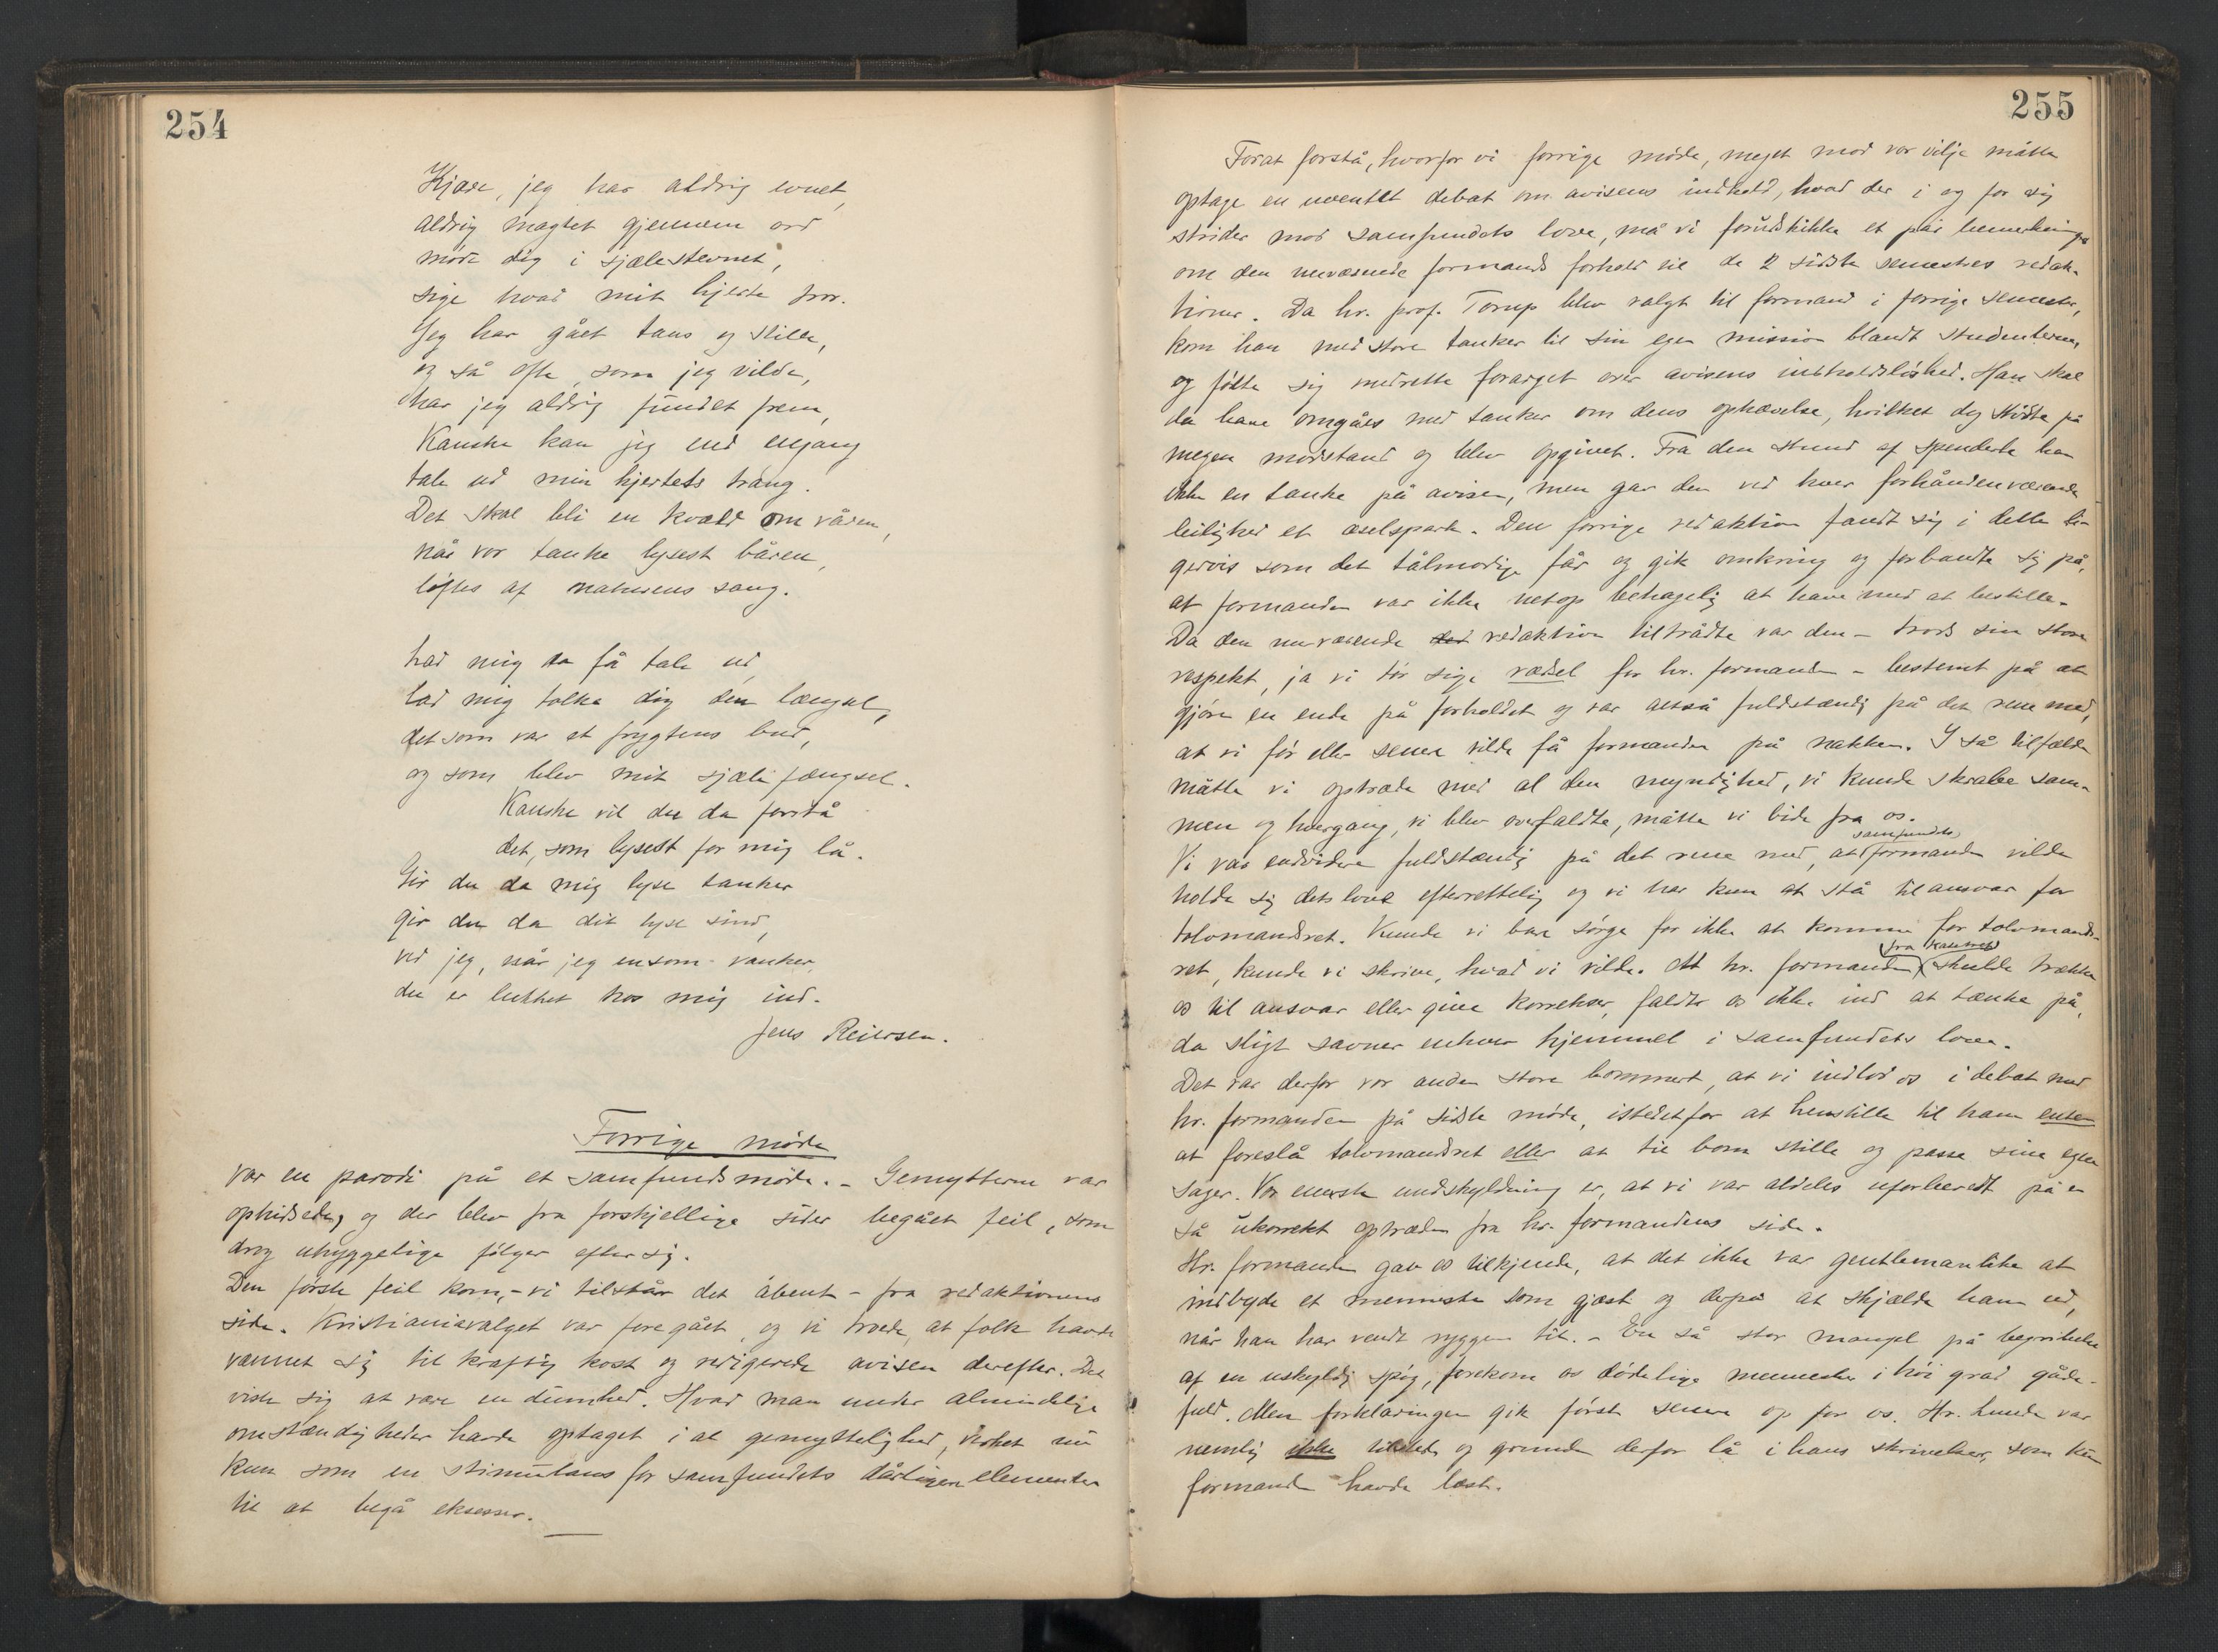 254
Kjære, jeg har aldrig evnet,
aldrig magtet gjennem ord
møde dig i sjælestevnet,
sige hvad mit hjerte tror.
Jeg har gået taus og stille,
og så ofte, som jeg vilde,
har jeg aldrig fundet frem,
Kanske kan jeg end engang
tale ud min hjertets trang.
Det skal bli en kvæld om våren,
når vor tanke lysest båren,
løftes af naturens sang.
Lad mig da få tale ud,
lad mig tolke dig den længsel,
det som var et frygtens bud,
og som blev mit sjæls fængsel.
Kanske vil du da forstå
det, som lysest for mig lå.
Gir du da mig lyse tanker
gir du da dit lyse sind,
ved jeg, når jeg ensom vanker,
du er lukket hos mig ind.
Jens Reiersen.
Forrige møde
var en parodi på et samfundsmøde. - Gemytterne var
ophidsede, og der blev fra forskjellige sider begået feil, som
drog uhyggelige følger efter sig.
Den første feil kom, - vi tilstår det åbent - fra redaktionens
side. Kristianiavalget var foregået, og vi troede, at folk havde
vannet sig til kraftig kost og redigerede avisen derefter. Det
viste sig at være en dumhed. Hvad man under almindelige
omstændigheder havde optaget i al gemyttelighed, virket nu
kun som en stimulans for samfundets dårligere elementer
til at begå eksesser.
255
Forat forstå, hvorfor vi forrige møde, meget mod vor vilje måtte
optage en uventet debat om avisens indhold, hvad der i og for sig
strider mod samfundets love, må vi forudskikke et par bemerkninger
om den nuværende formands forhold til de 2 sidste semestres redak-
tioner. Da hr. prof. Torup blev valgt til formand i forrige semester,
kom han med store tanker til sin egen mission blandt studenterne,
og følte sig medrette forarget over avisens indholdsløshed. Han skal
da have omgåes med tanker om dens ophævelse, hvilket dog stødte på
megen modstand og blev opgivet. Fra den stund af spenderte han
ikke en tanke på avisen, men gav den ved hver forhåndenværende
leilighed et æselspark. Den forrige redaktion fandt sig i dette li-
gervis som det tålmodige får og gik omkring og forbandte sig på,
at formanden var ikke netop behagelig at have med at bestille.
Da den nuværende red redaktion tiltrådte var den - trods sin store
respekt, ja vi tør sige rædsel for hr. formanden - bestemt på at
gjøre en ende på forholdet og var altså fuldstændig på det rene med,
at vi før eller senere vilde få formanden på nakken. I så tilfælde
måtte vi optræde med al den myndighed, vi kunde skrabe sam-
men og hvergang, vi blev overfaldte, måtte vi bide fra os.
Vi var endvidere fuldstændig på det rene med, at samfundets formand vilde
holde sig dets love efterrettelig og vi har kun at stå til ansvar for
tolvmandsret. Kunde vi bare sørge for ikke at komme for tolvmands-
ret, kunde vi skrive, hvad vi vilde. At hr. formanden fra kathedret skulde trække
os til ansvar eller give korrekser, faldt os ikke ind at tænke på,
da sligt savner enhver hjemmel i samfundets love.
Det var derfor vor anden store bommert, at vi indlod os i debat med
hr. formanden på sidste møde, istedetfor at henstille til ham enten
at foreslå tolvmandsret eller at tie bom stille og passe sine egne
sager. Vor eneste undskyldning er, at vi var aldeles uforberedt på en
så ukorrekt optræden fra hr. formandens side.
Hr. formanden gav os tilkjende, at det ikke var gentlemanlike at
indbyde et menneske som gjæst og derpå at skjælde ham ud,
når han har vendt ryggen til. - En så stor mangel på begribelse
af en uskyldig spøg, forekom os dødelige mennesker i høi grad gåde-
fuld. Men forklaringen gik først senere op for os. Hr. Lunde var
nemlig ikke tilstede og grunden derfor lå i hans skrivelser, som kun
formanden havde læst.